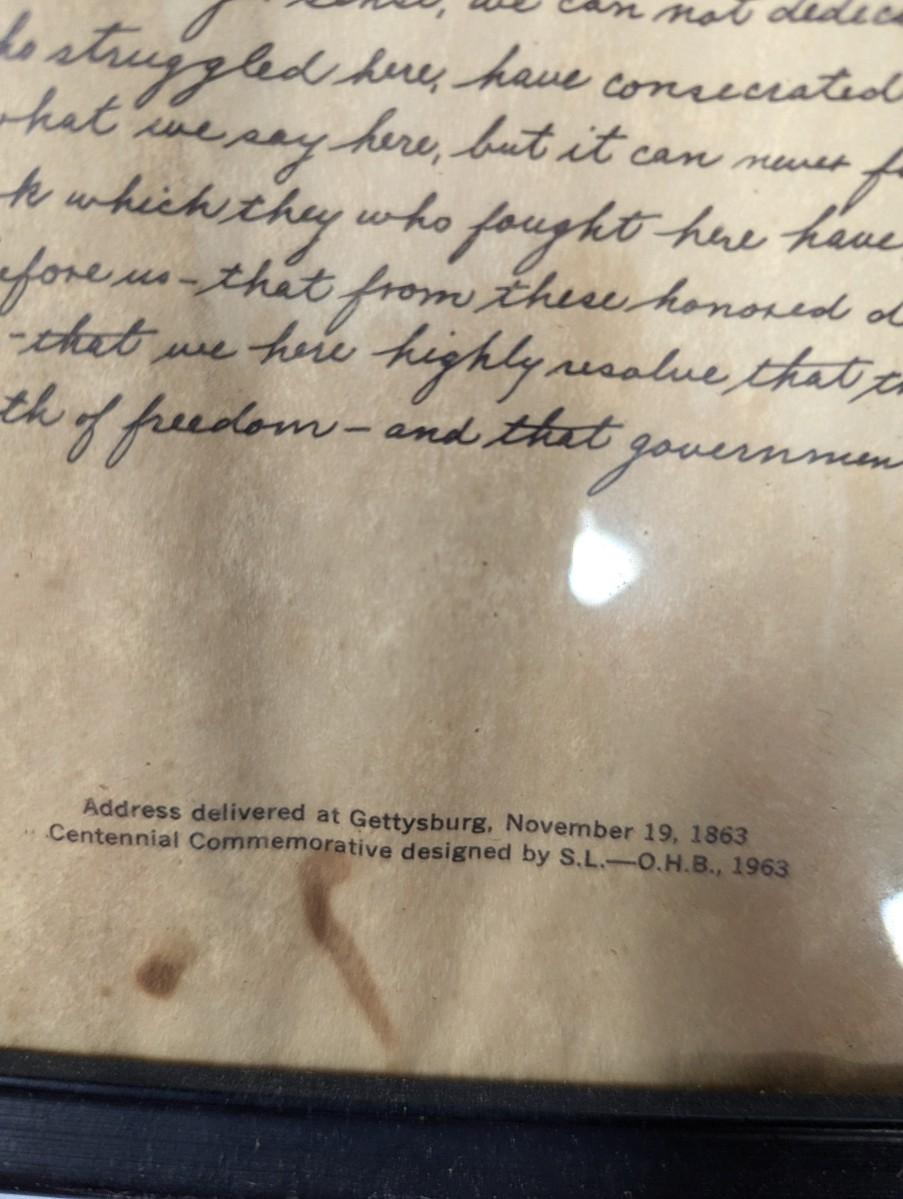 sense, we can not
struggled here, have consecrated
what we say here, but it can never
k which they who fought here have
efore us - that from these honored d
- that we here highly resolve that
th of freedom - and that governmen
Address delivered at Gettysburg, November 19, 1863
Centennial Commemorative designed by S.L.—O.H.B., 1963